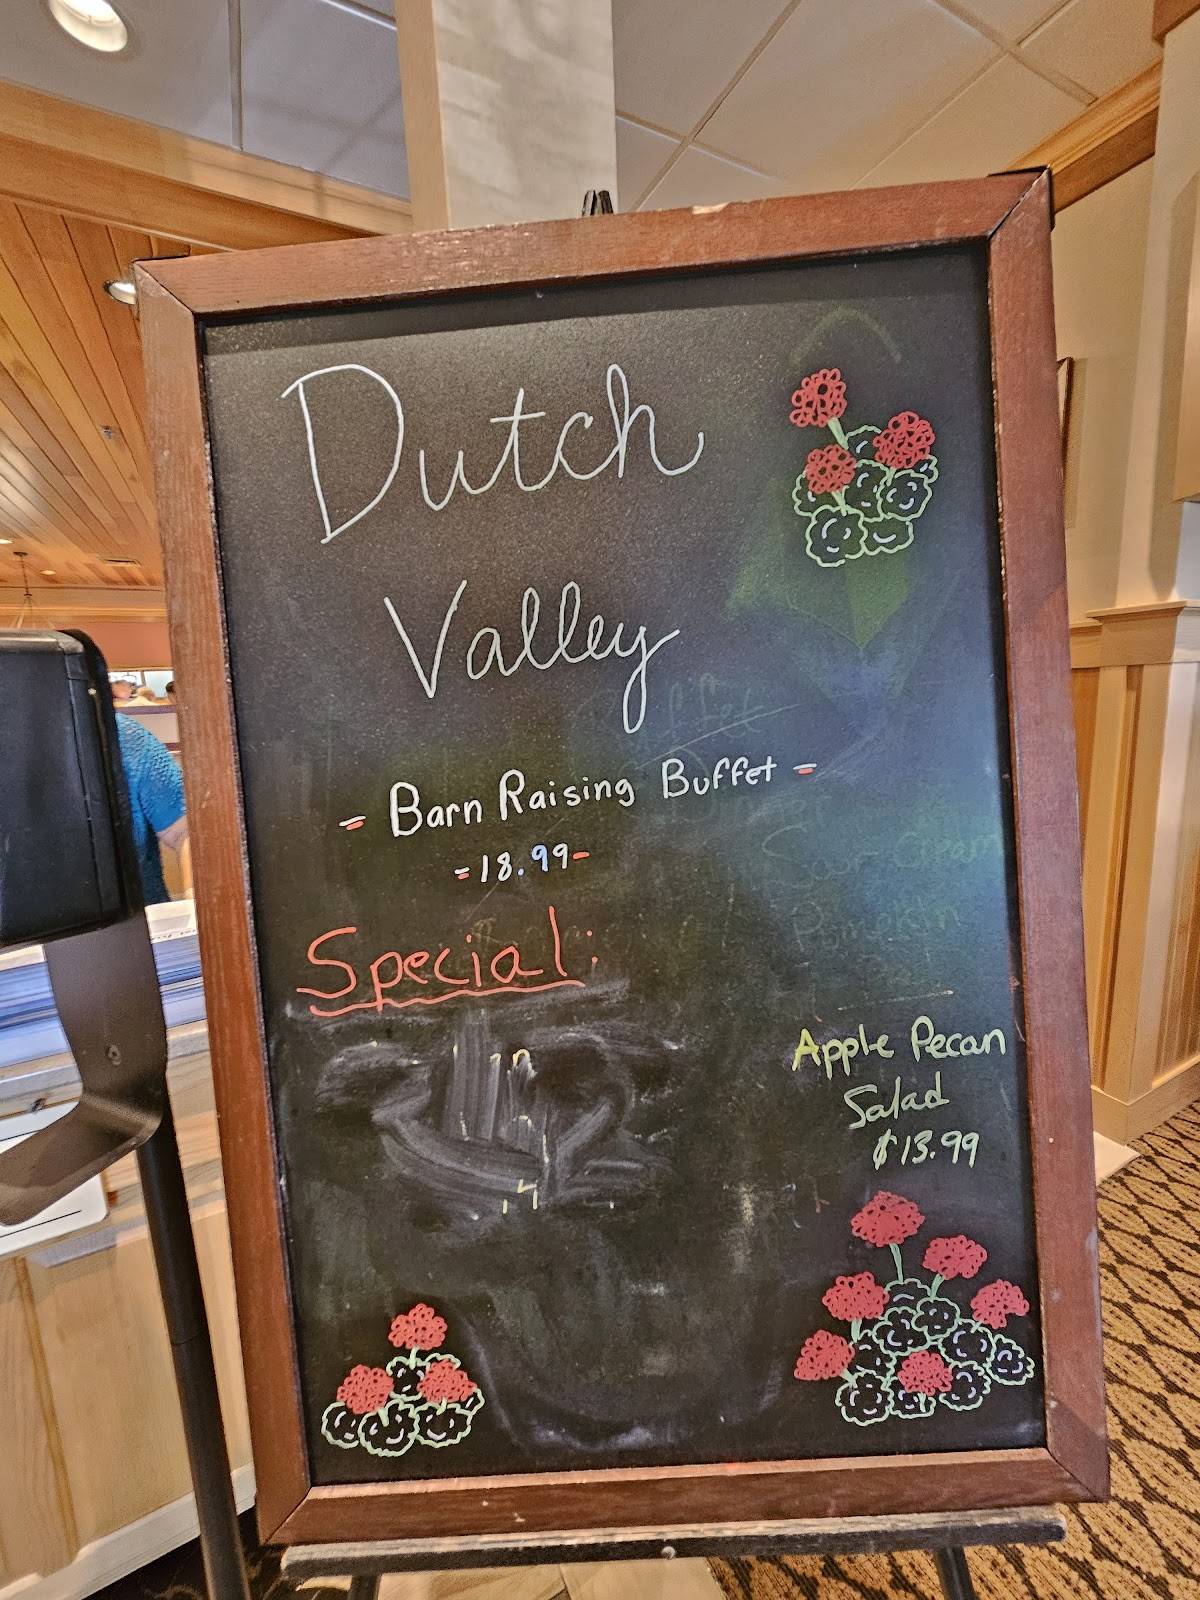 Dutch
Valley
- Barn Raising Buffet -
- 18.99 -
Special:
Apple Pecan
Salad
$13.99